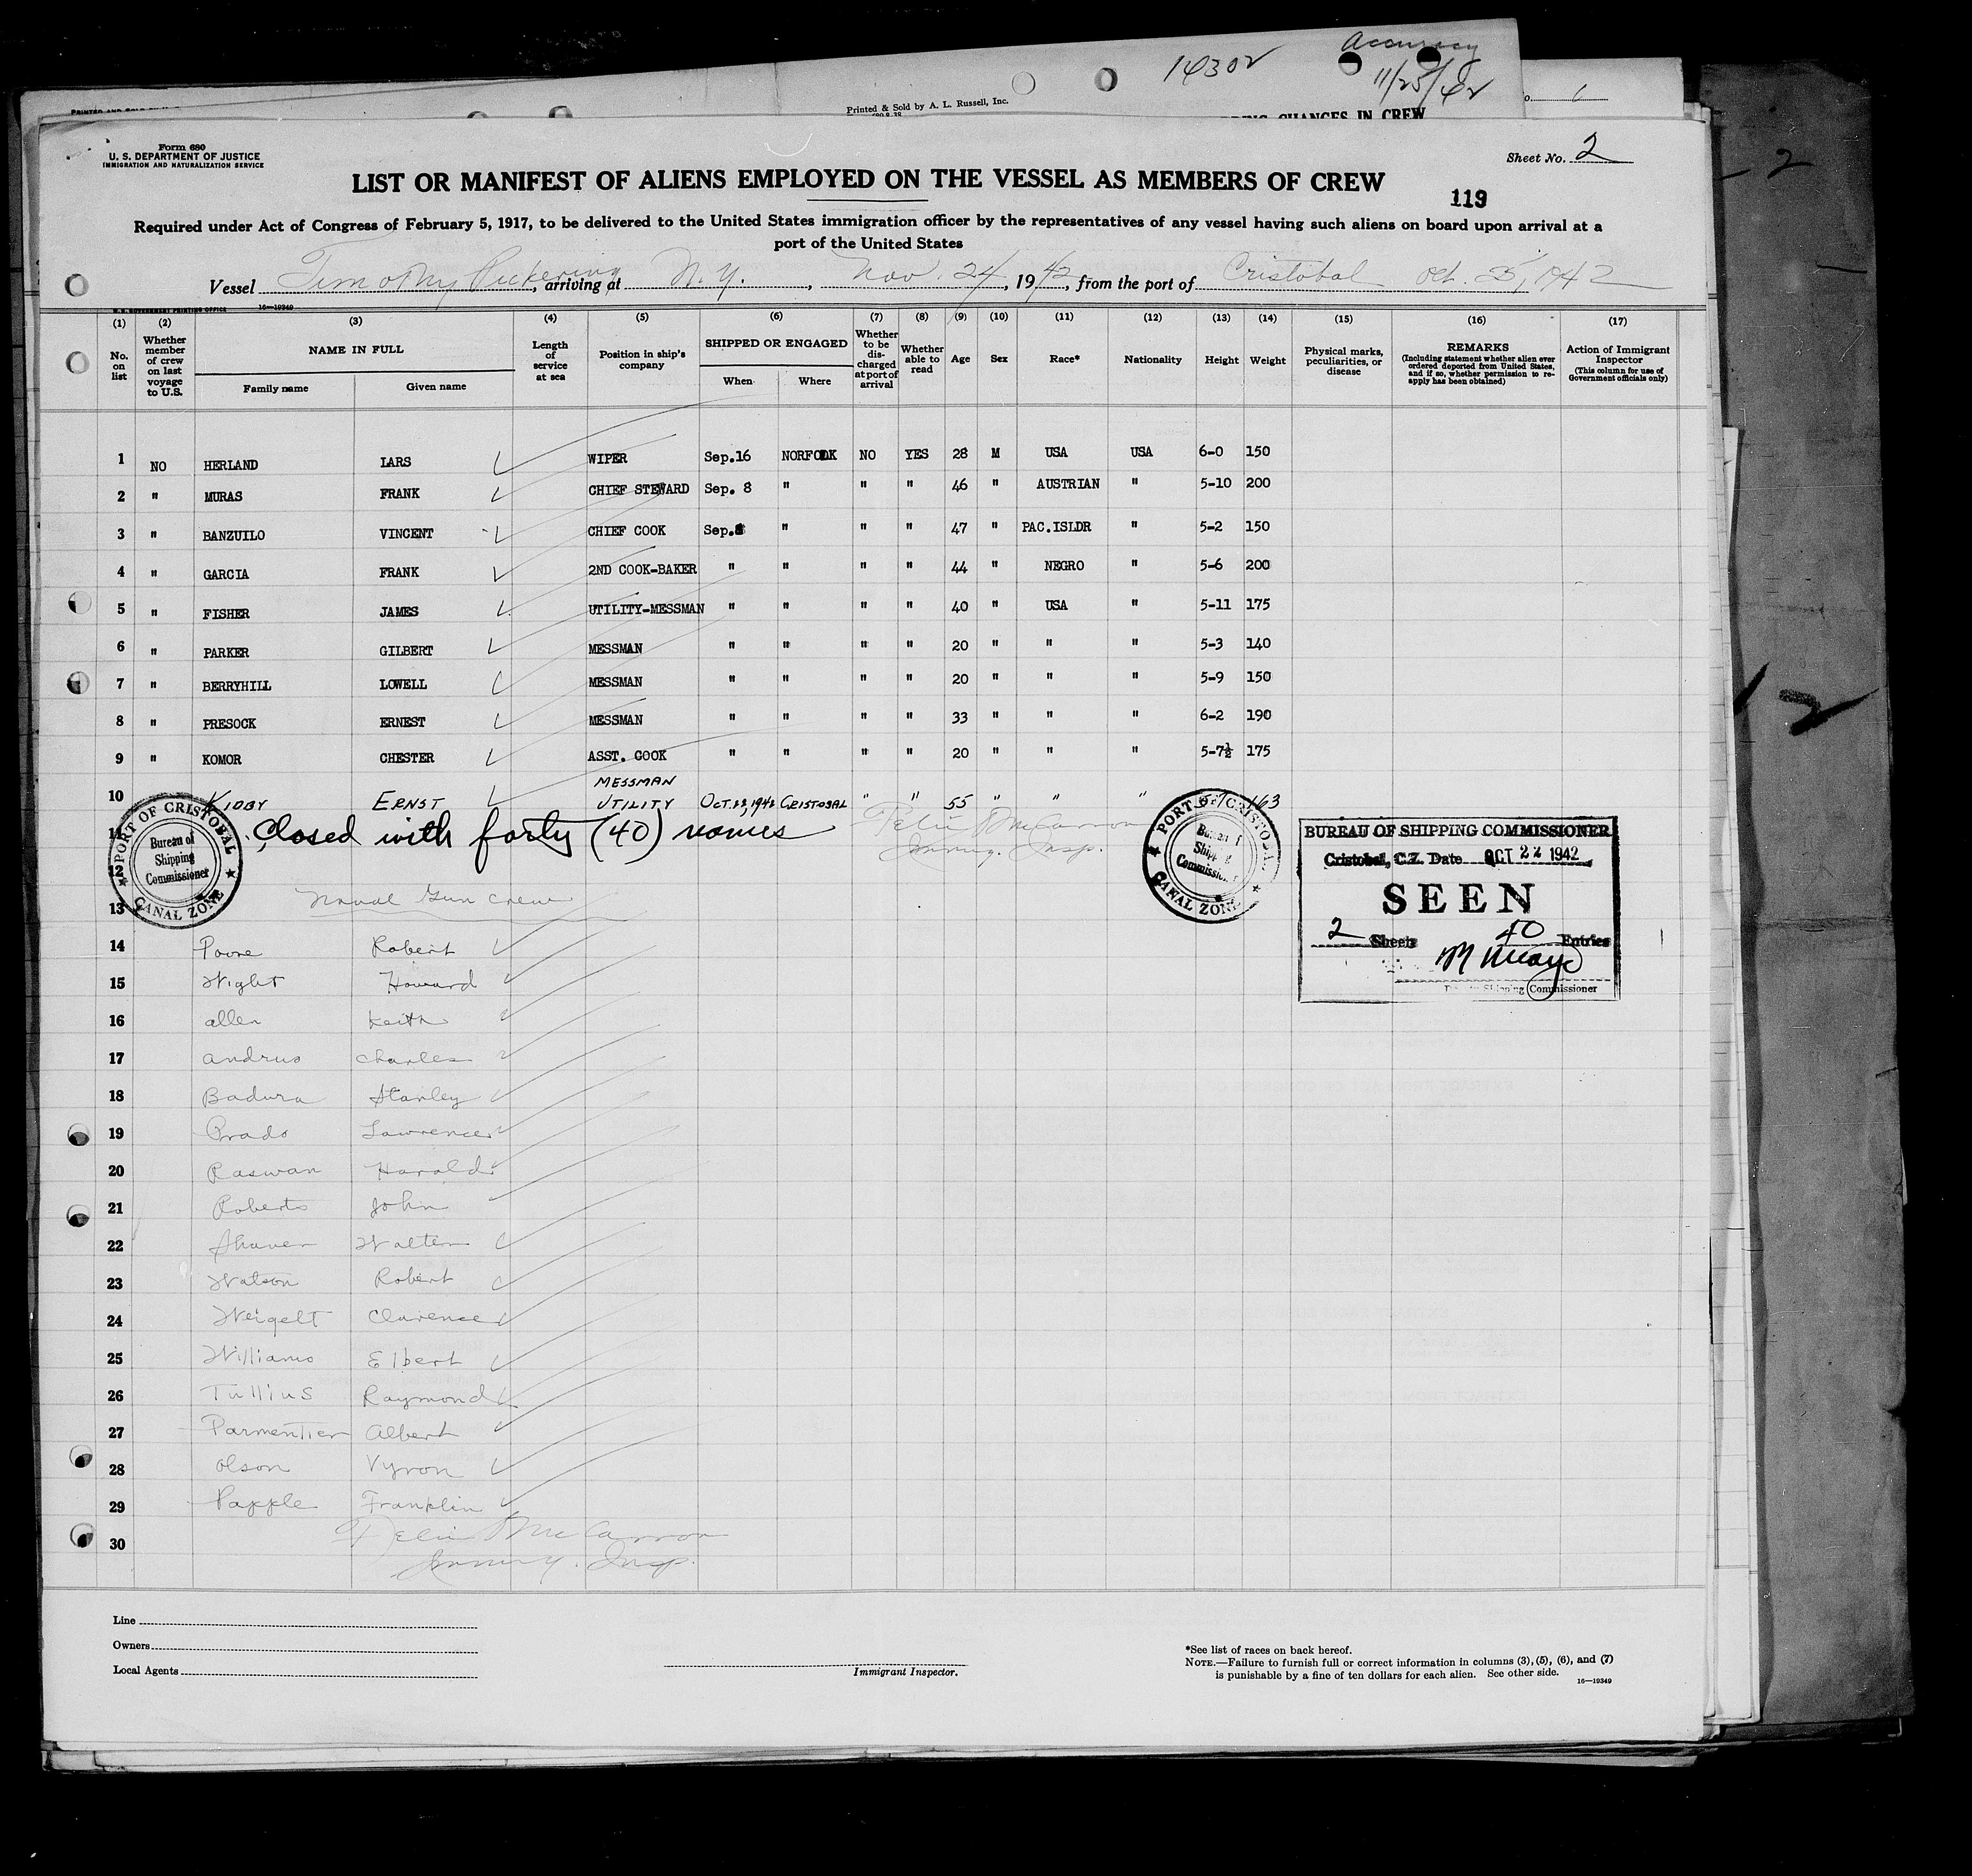 14302
Accuracy
11/25/42
Printed & Sold by A. L. Russell, Inc.
CHANGES IN CREW
Form 680
U. S. DEPARTMENT OF JUSTICE
IMMIGRATION AND NATURALIZATION SERVICE
Sheet No. 2
LIST OR MANIFEST OF ALIENS EMPLOYED ON THE VESSEL AS MEMBERS OF CREW
119
Required under Act of Congress of February 5, 1917, to be delivered to the United States immigration officer by the representatives of any vessel having such aliens on board upon arrival at a
port of the United States
Vessel Timothy Pickering, arriving at N.Y., Nov. 24, 1942, from the port of Cristobal Oct. 25, 1942
U. S. GOVERNMENT PRINTING OFFICE 16—19349
(1) (2) (3) (4) (5) (6) (7) (8) (9) (10) (11) (12) (13) (14) (15) (16) (17)
No. on list
Whether member of crew on last voyage to U.S.
NAME IN FULL
Family name
Given name
Length of service at sea
Position in ship's company
SHIPPED OR ENGAGED
When
Where
Whether to be discharged at port of arrival
Whether able to read
Age
Sex
Race*
Nationality
Height
Weight
Physical marks, peculiarities, or disease
REMARKS
(Including statement whether alien ever ordered deported from United States, and if so, whether permission to reapply has been obtained)
Action of Immigrant Inspector
(This column for use of Government officials only)
1 NO HERLAND LARS WIPER Sep.16 NORFOLK NO YES 28 M USA USA 6-0 150
2 " MURAS FRANK CHIEF STEWARD Sep. 8 " " " 46 " AUSTRIAN " 5-10 200
3 " BANZUILO VINCENT CHIEF COOK Sep.8 " " " 47 " PAC.ISLDR " 5-2 150
4 " GARCIA FRANK 2ND COOK-BAKER " " " " 44 " NEGRO " 5-6 200
5 " FISHER JAMES UTILITY-MESSMAN " " " " 40 " USA " 5-11 175
6 " PARKER GILBERT MESSMAN " " " " 20 " " " 5-3 140
7 " BERRYHILL LOWELL MESSMAN " " " " 20 " " " 5-9 150
8 " PRESOCK ERNEST MESSMAN " " " " 33 " " " 6-2 190
9 " KOMOR CHESTER ASST. COOK " " " " 20 " " " 5-7½ 175
MESSMAN
10 KIDBY ERNST UTILITY OCT. 23, 1942 CRISTOBAL " " 55 " " " 163
11 Closed with forty (40) names
Felix McCarron
Immig. Insp.
12
PORT OF CRISTOBAL
Bureau of
Shipping
Commissioner
CANAL ZONE
PORT OF CRISTOBAL
Shipping
Commissioner
CANAL ZONE
BUREAU OF SHIPPING COMMISSIONER
Cristobal, C.Z. Date OCT 24 1942
SEEN
2 Sheets 40 Entries
Shipping Commissioner
13 Naval Gun Crew
14 Poore Robert
15 Wight Howard
16 Allen Keith
17 Andrus Charles
18 Badura Stanley
19 Prado Lawrence
20 Raswan Harold
21 Roberts John
22 Shaver Walter
23 Watson Robert
24 Weigelt Clarence
25 Williams Elbert
26 Tullius Raymond
27 Parmentier Albert
28 Olson Vyron
29 Papple Franklin
30 Felix McCarron
Immig. Insp.
Line
Owners
Local Agents
Immigrant Inspector.
*See list of races on back hereof.
NOTE.—Failure to furnish full or correct information in columns (3), (5), (6), and (7)
is punishable by a fine of ten dollars for each alien. See other side.
16—19349